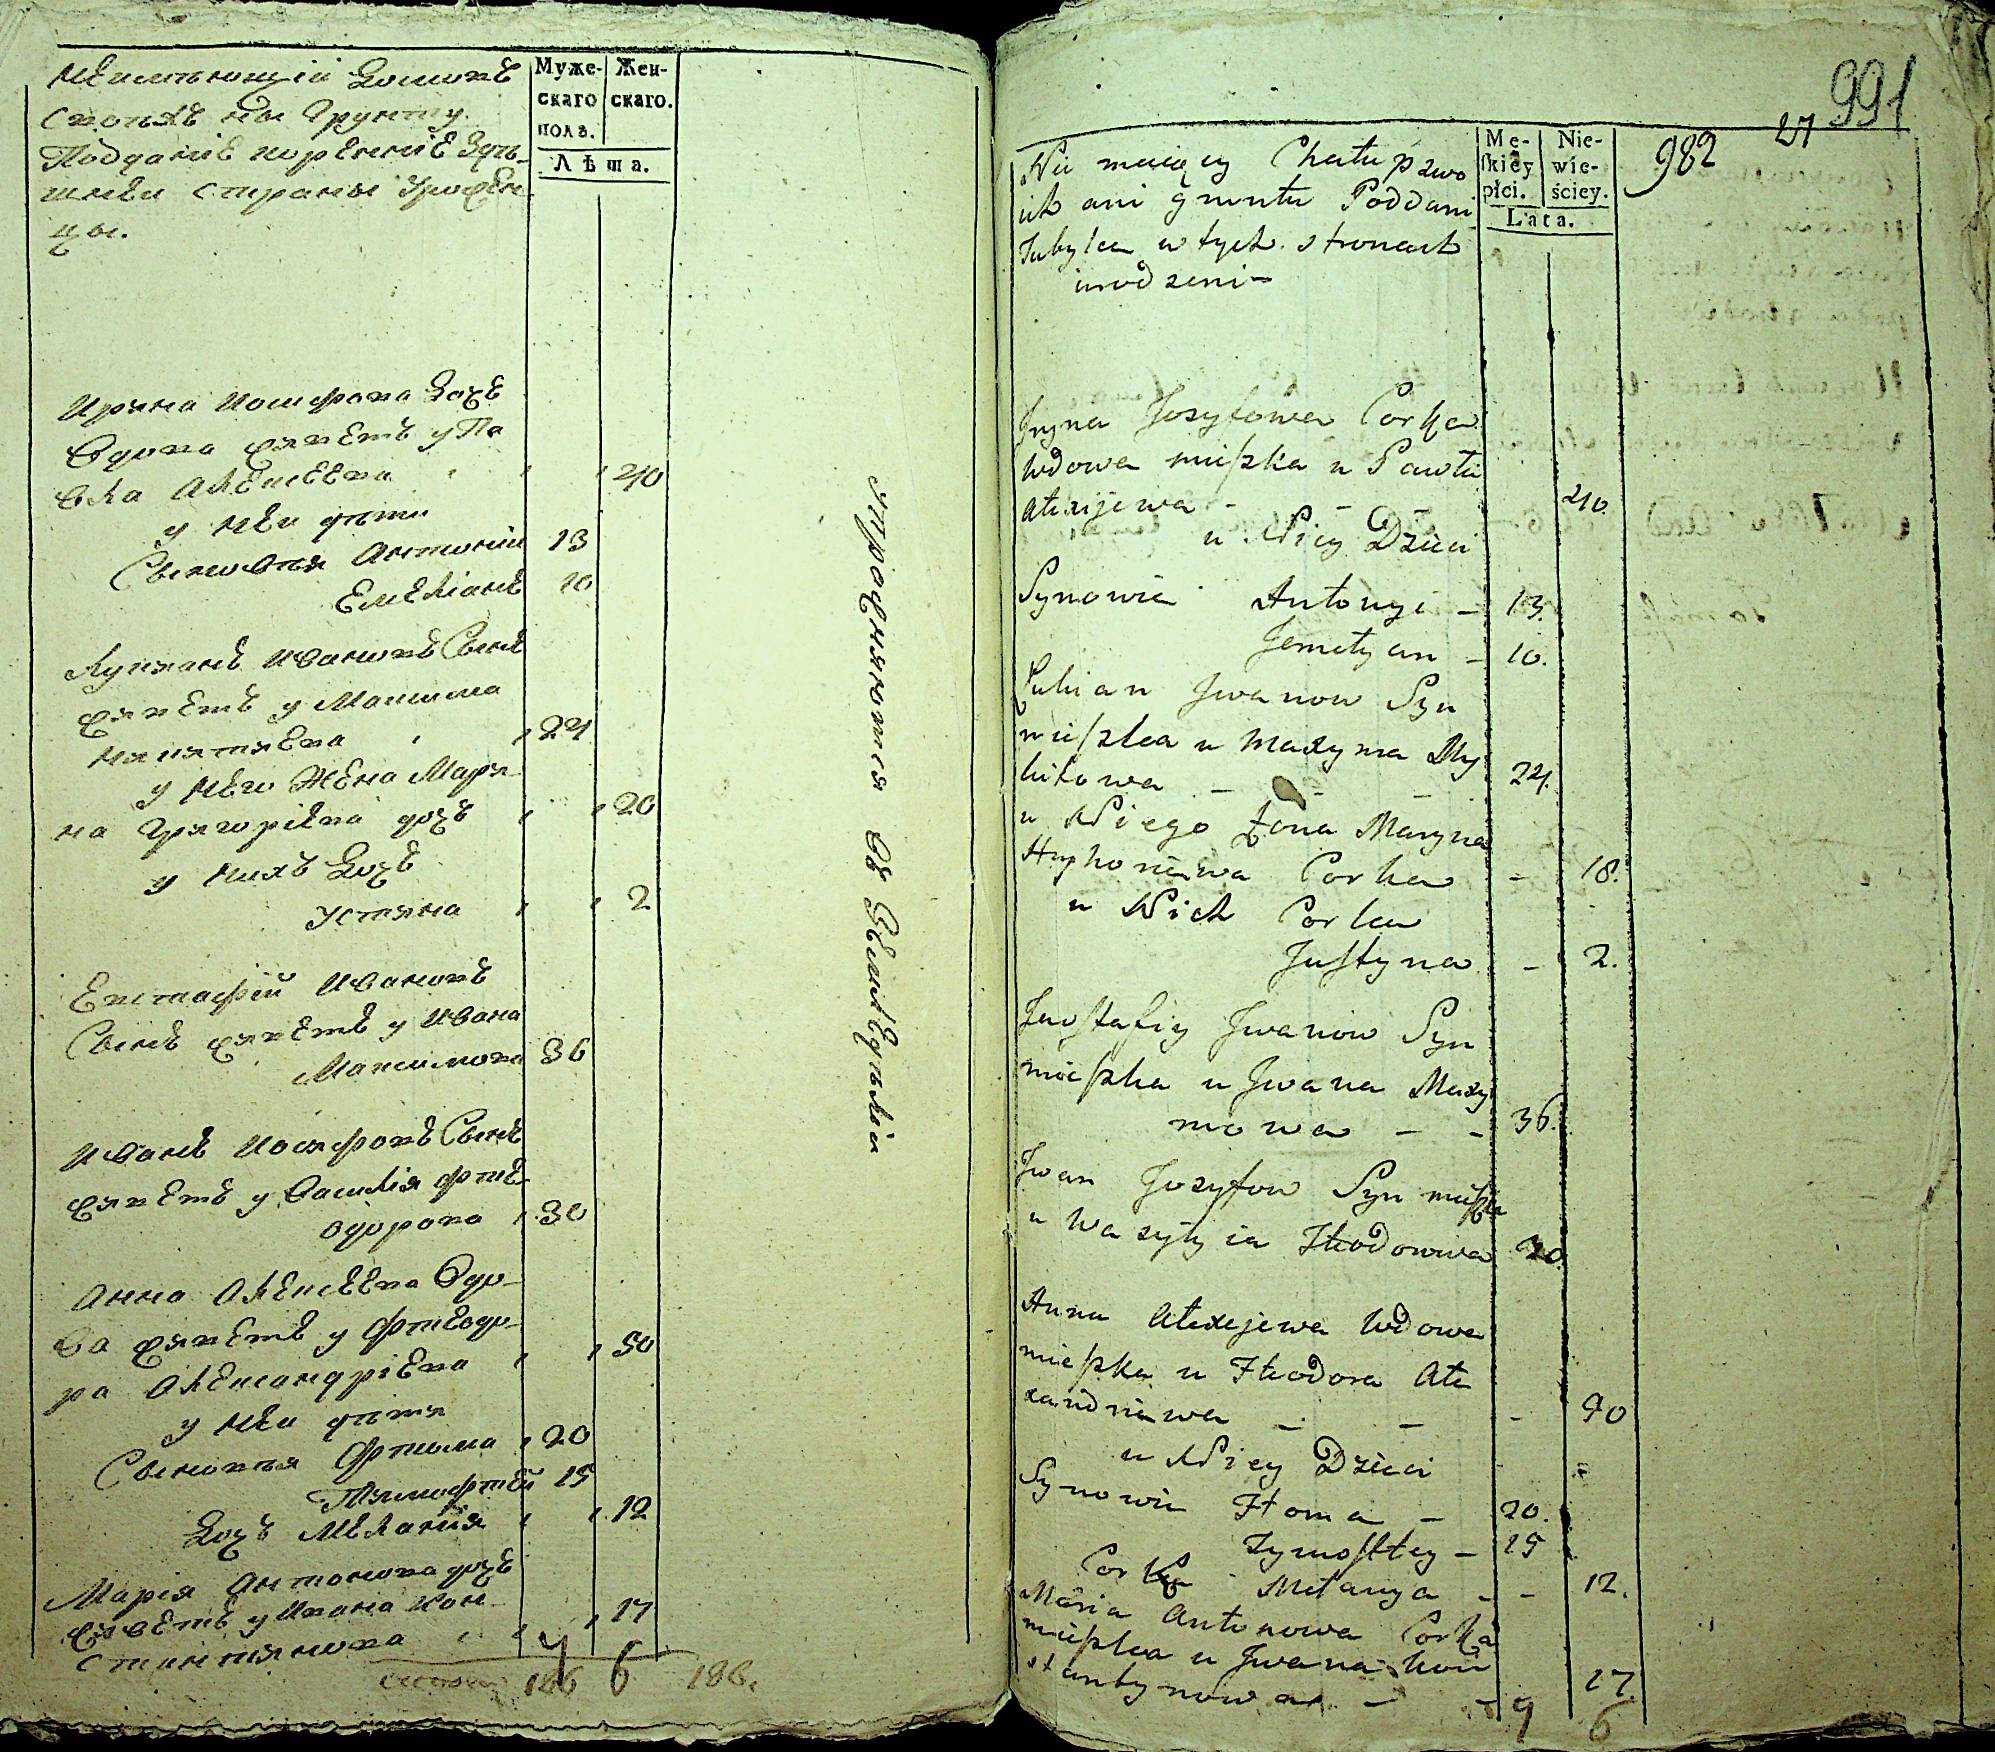 Неимѣющій Домовъ
своихъ ни Грунту.
Подданіе коренніе здѣ-
шнеи страны Урожен-
цы.
Муже-
скаго
полз.
Жен-
скаго.
Лѣта.
Ирина Иосифова Дочь
Вдова живетъ у Па
вла Алексеева 40
у неи дѣти
Сыновья Антоній 13
Емеліанъ 10
Лукіанъ Ивановъ Сынъ
живетъ у Максима
Никитяева 24
у него Жена Мари-
на Григоріева дочь 20
у нихъ Дочь
Устина 2
Евстафій Ивановъ
Сынъ живетъ у Ивана
Максимова 36
Иванъ Иосифовъ Сынъ
живетъ у Василія Фтео-
одорова 30
Анна Алексеева Вдо-
ва живетъ у Фтеодо-
ра Александріева 50
у неи дѣти
Сыновья Фтома 20
Тимофтей 15
Дочь Меланія 12
Марія Антонова дочь
живетъ у Ивана Кон-
стантинова 17
6
186.
Упражняются въ Земледѣліи
991
982
27
Nie maiący Chatup swo
ich ani gruntu Poddani
Tubylca w tych stronach
urodzeni
Mę-
skiey
płci.
Nie-
wie-
ściey.
Lata.
Jryna Jozyfowa Corka
Wdowa mieszka u Pawła
Alexijewa - - - 40.
u Niey Dzieci
Synowie Antonyi - 13.
Jemelyan - 10.
Lukian Jwanow Syn
mieszka u Maxyma My
kitowa - - - 24.
u Niego Żona Maryna
Hryhoriewa Corka - 18.
u Nich Corka
Justyna - 2.
Jewstafiy Jwanow Syn
mieszka u Jwana Maxy
mowa - - 36.
Jwan Jozyfow Syn mieszka
u Wasylyia Fteodorowa 30
Anna Alexejewa Wdowa
mieszka u Fteodora Ale
xandriewa - - - 90
u Niey Dzieci
Synowie Ftoma - 20.
Tymoftey - 15
Corka Melanya - - 12.
Maria Antonowa Corka
mieszka u Jwana Kon
stantynowa - - 17
9 6